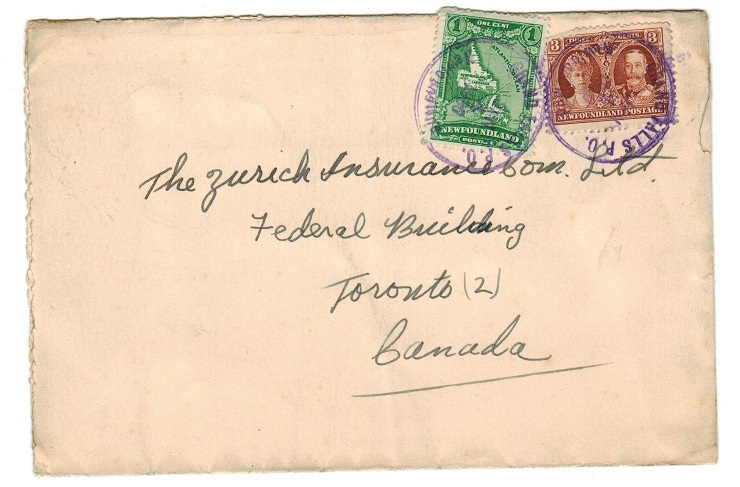 1 ONE CENT 1
NEWFOUNDLAND
POSTAGE
3 THREE CENTS 3
NEWFOUNDLAND POSTAGE
P.O.
FALLS P.O.
The Zurich Insurance Com. Ltd.
Federal Building
Toronto (2)
Canada